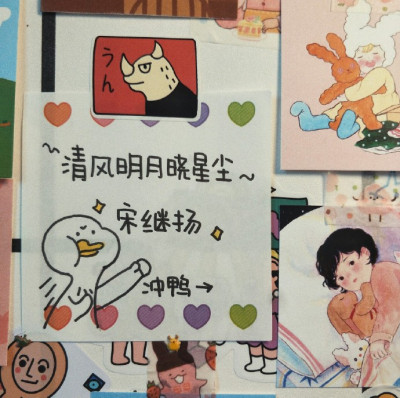 うん
~清风明月晓星尘~
宋继扬
冲鸭→